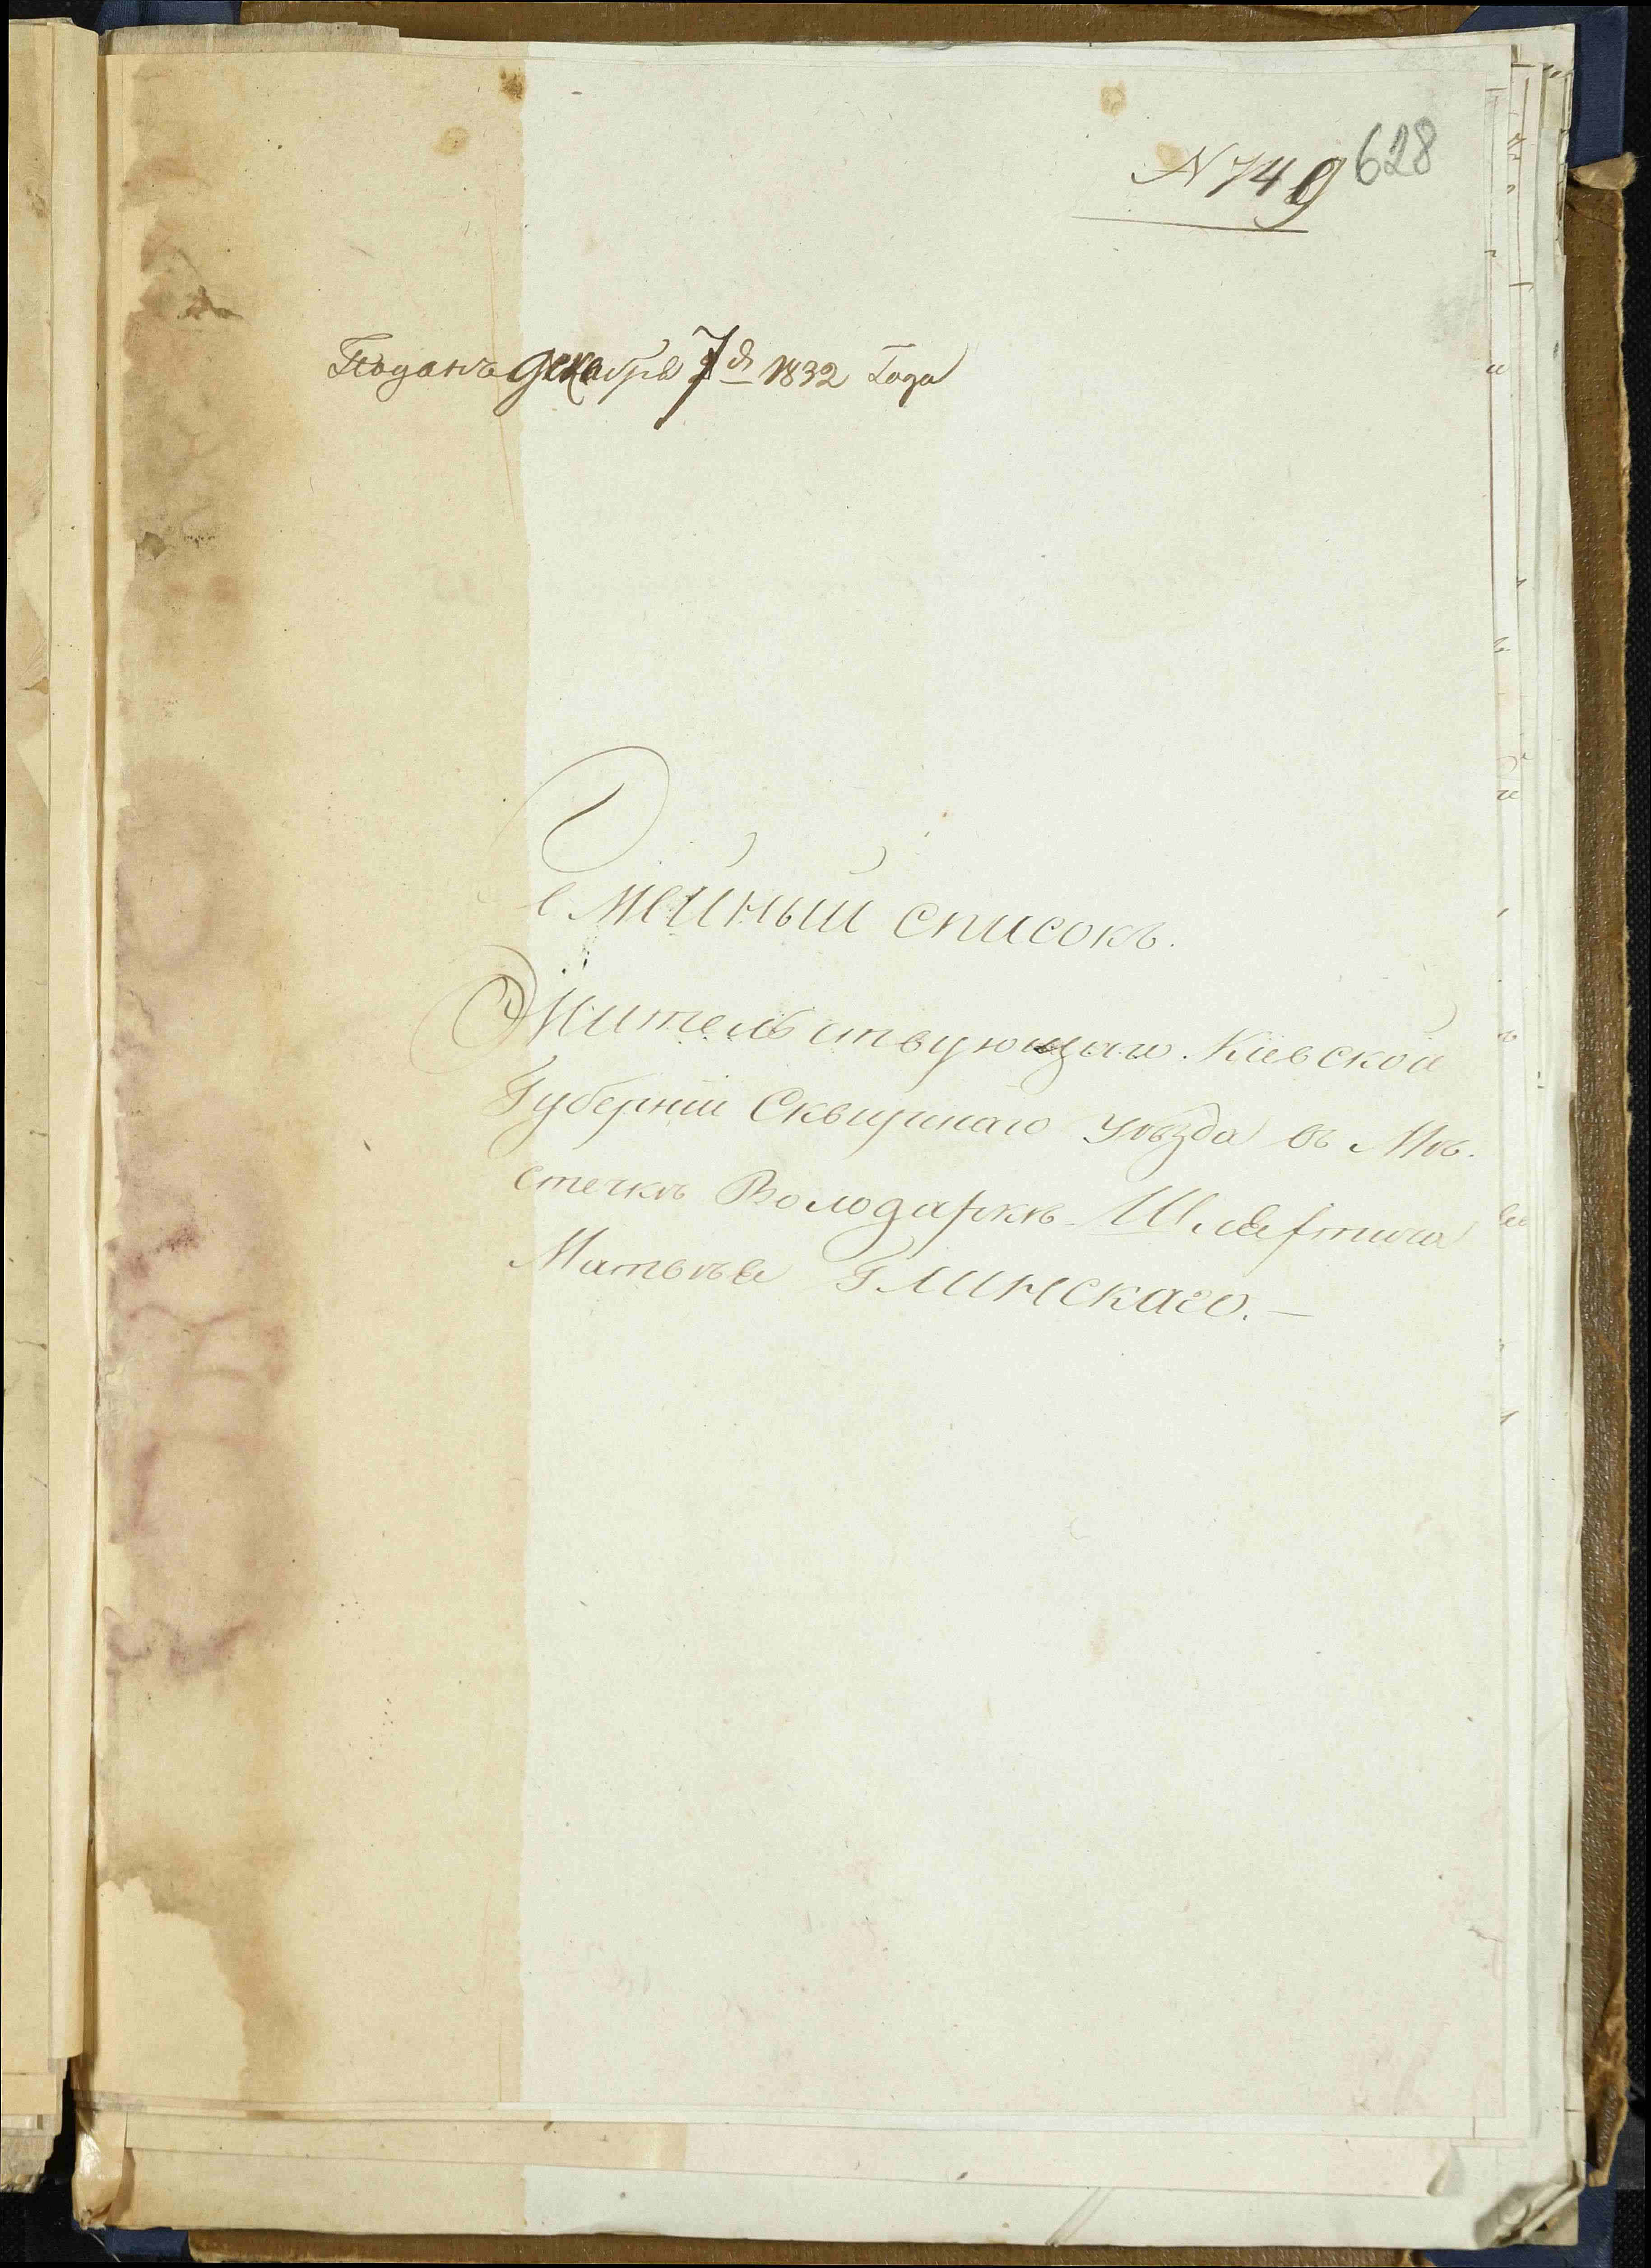 N 749
628
Поданъ Декабря 7 д 1832 Года
Семейный списокъ.
Жительствующаго Кіевской
Губерніи Сквирскаго уѣзда въ Мѣ-
стечкѣ Володаркѣ Шляхтича
Матвѣя Глинскаго.—